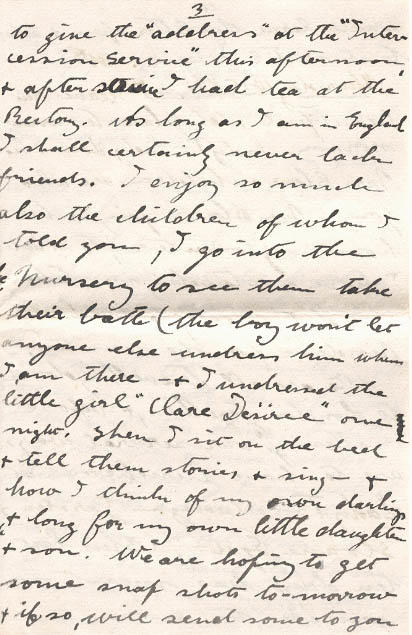 3
to give the "address" at the "Inter-
cession Service" this afternoon,
& after I had tea at the
Rectory. As long as I am in England
I shall certainly never lack
friends. I enjoy so much
also the children of whom I
told you, I go into the
Nursery to see them take
their bath (the boy won't let
anyone else undress him when
I am there - & I undressed the
little girl "Clare Desiree" one
night. Then I sit on the bed
& tell them stories & sing - &
how I think of my own darlings
& long for my own little daughter
& son. We are hoping to get
some snap shots to-morrow
& if so, will send some to you